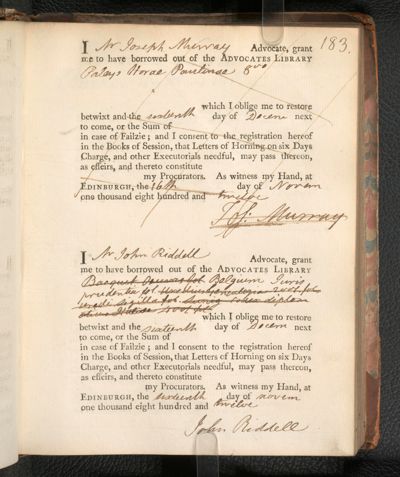 183.
I Mr Joseph Murray Advocate, grant
me to have borrowed out of the ADVOCATES LIBRARY
Paleys Horae Paulinae 8vo
which I oblige me to restore
betwixt and the sixteenth day of Decem next
to come, or the Sum of
in case of Failzie; and I consent to the registration hereof
in the Books of Session, that Letters of Horning on six Days
Charge, and other Executorials needful, may pass thereon,
as effeirs, and thereto constitute
my Procurators. As witness my Hand, at
EDINBURGH, the 16th day of Novem
one thousand eight hundred and twelve
Murray
I Mr John Riddell Advocate, grant
me to have borrowed out of the ADVOCATES LIBRARY
Belgium Juris
prudentia
which I oblige me to restore
betwixt and the sixteenth day of Decem next
to come, or the Sum of
in case of Failzie; and I consent to the registration hereof
in the Books of Session, that Letters of Horning on six Days
Charge, and other Executorials needful, may pass thereon,
as effeirs, and thereto constitute
my Procurators. As witness my Hand, at
EDINBURGH, the sixteenth day of novem
one thousand eight hundred and twelve
John Riddell